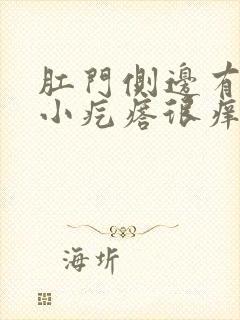 肛門側邊有
小疙瘩很癢
海圻